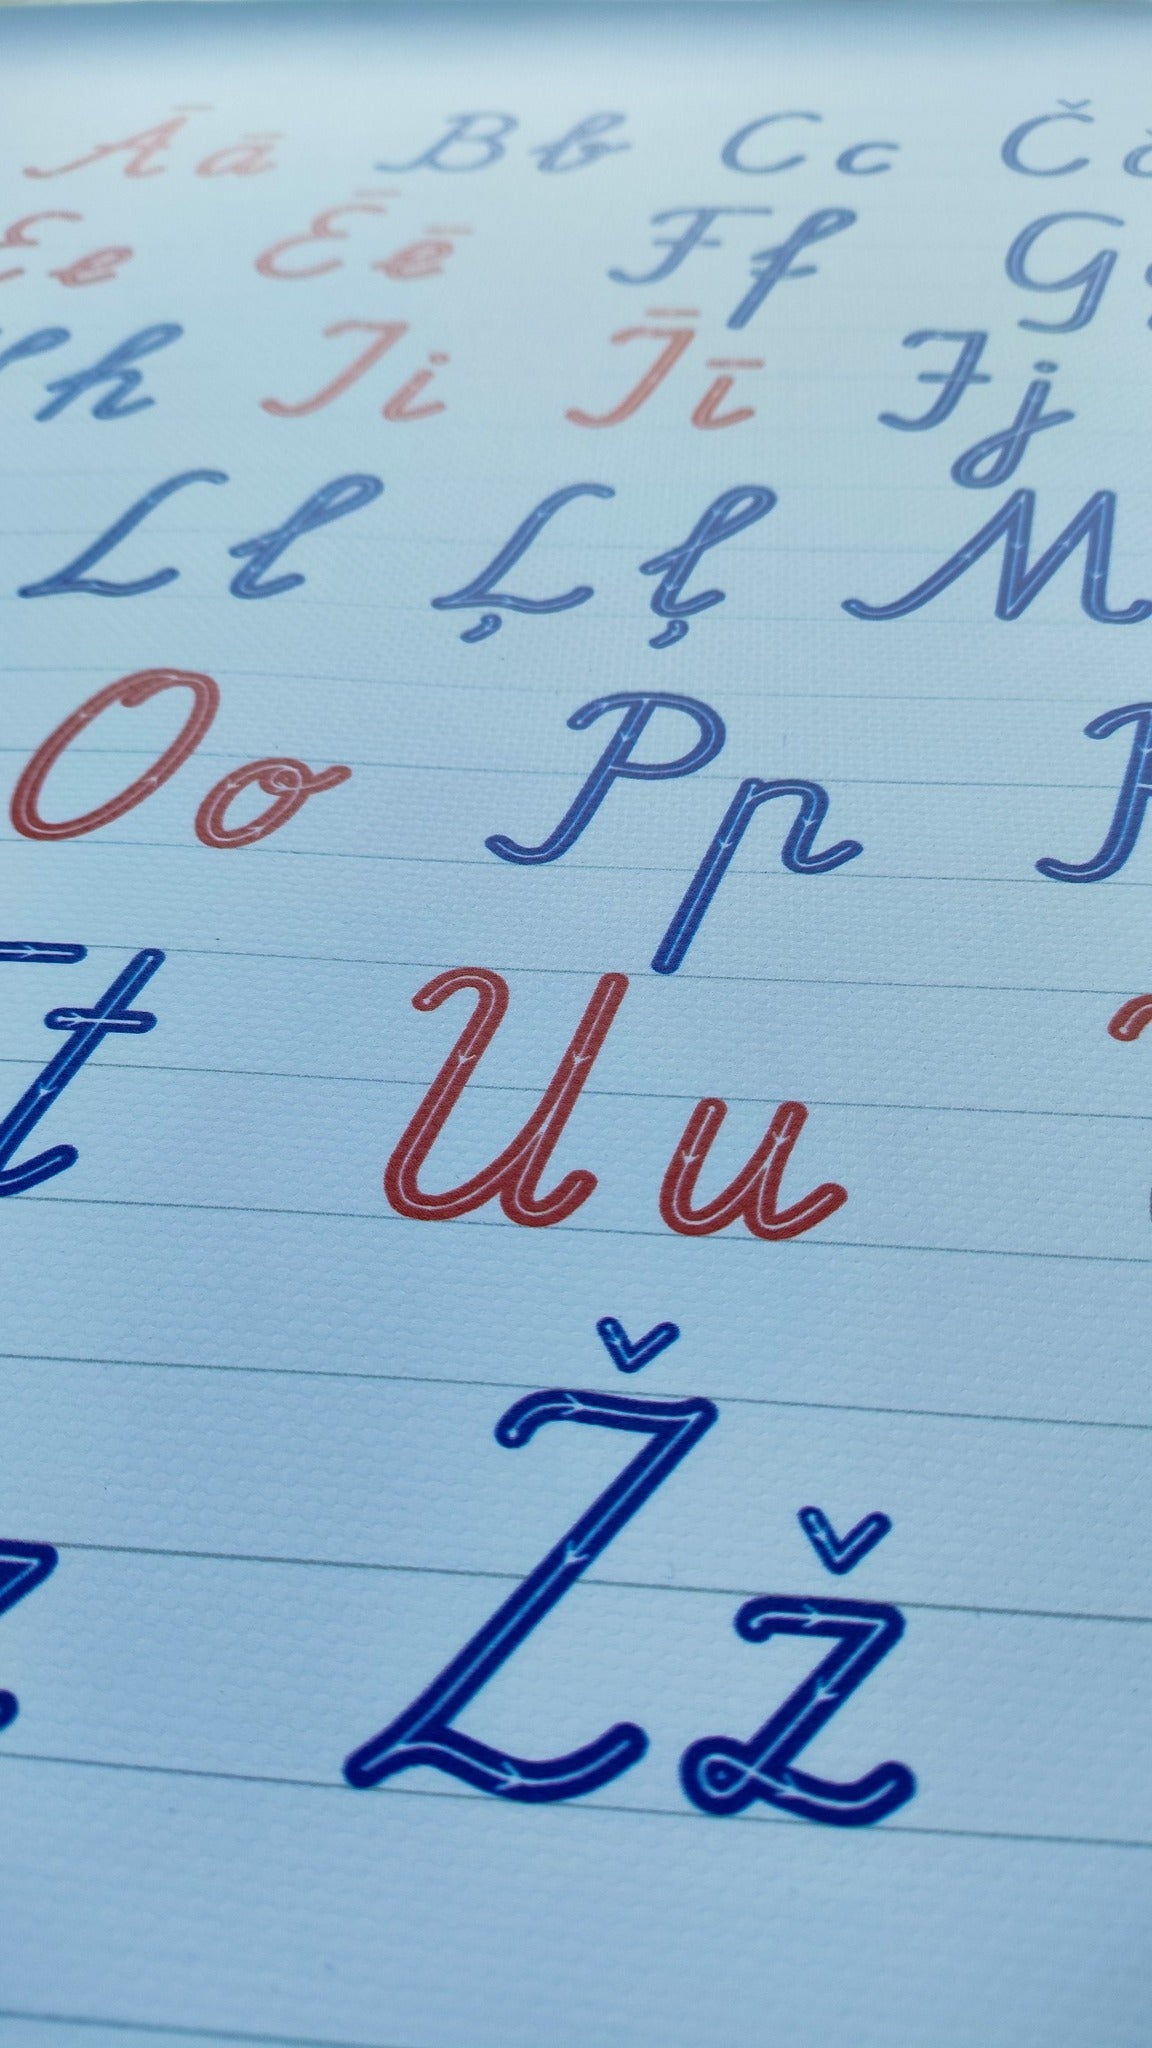 Ā ā B b C c Č
E e Ē ē F f G
h I i Ī ī J j
L l Ļ ļ M
O o P p
t U u
Ž ž